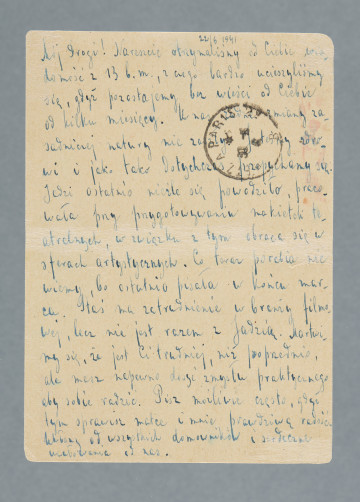 22/6 1941
Mój Drogi! Nareszcie otrzymaliśmy od Ciebie wia-
domość z 13 b.m., z czego bardzo ucieszyliśmy
się, gdyż pozostajemy bez wieści od Ciebie
od kilku miesięcy. U nas zmiany za-
sadniczej natury nie zdro-
wi i jako tako dotychczas przepychamy się.
Jadzi ostatnio nieźle się powodziło, praco-
wała przy przygotowywaniu makietek te-
atralnych, w związku z tym obraca się w
sferach artystycznych. Co teraz porabia nie
wiemy, bo ostatnio pisała w końcu mar-
ca. Staś ma zatrudnienie w branży filmo-
wej, lecz nie jest razem z Jadzią. Martwi-
my się, że jest Ci trudniej, niż poprzednio,
ale masz napewno dosyć zmysłu praktycznego
aby sobie radzić. Pisz możliwie często, gdyż
tym sprawisz matce i mnie prawdziwą radość.
od wszystkich domowników i serdeczne
ucałowania od nas.
PARIS